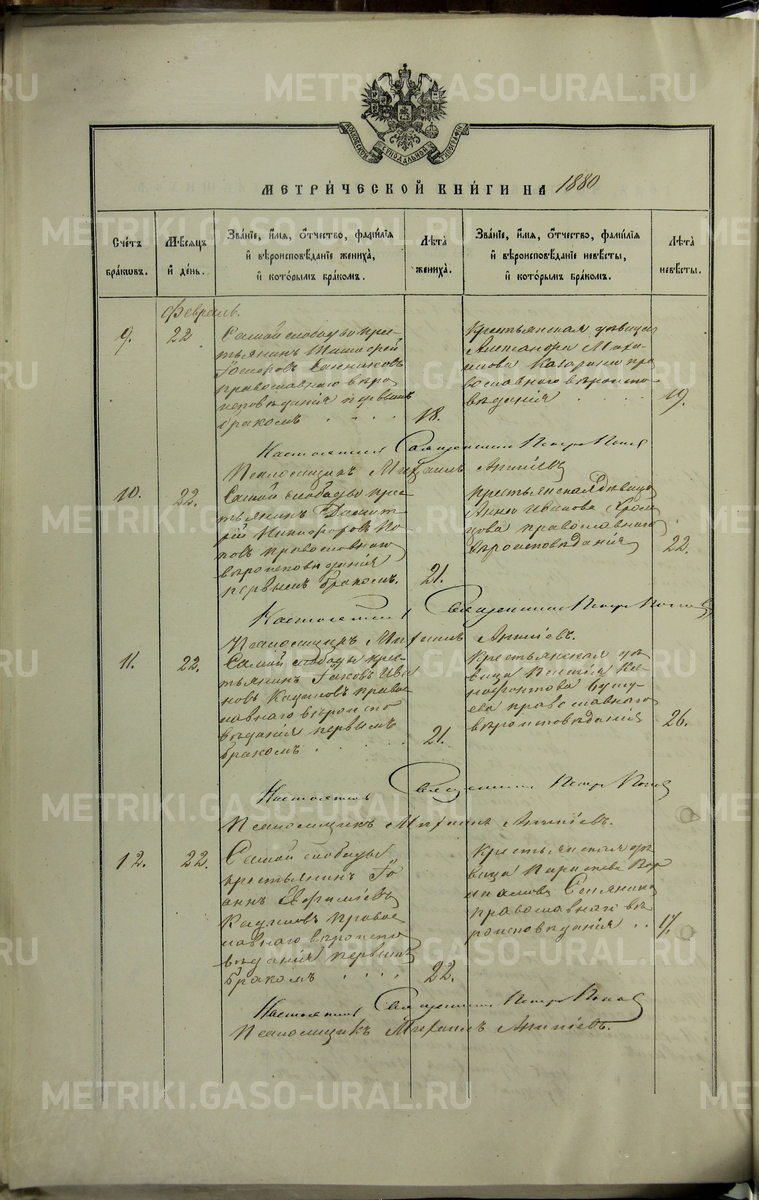 МОСКОВСКОЙ СѴНОДАЛЬНОЙ ТИПОГРАФІИ
МЕТРИ́ЧЕСКОЙ КНИ́ГИ НА 1880
Сче́тъ бра́кѡвъ.
Мѣ́сяцъ и҆ де́нь.
Зва́нїе, и҆́мя, ѻ҆́тчество, фами́лїя и҆ вѣроисповѣ́данїе жениха̀, и҆ кото́рымъ бра́комъ.
Лѣ́та жениха̀.
Зва́нїе, и҆́мя, ѻ҆́тчество, фами́лїя и҆ вѣроисповѣ́данїе невѣ́сты, и҆ кото́рымъ бра́комъ.
Лѣ́та невѣ́сты.
Февраль.
9.
22
Самой слободы кре-
стьянинъ
православнаго вѣро
исповѣданія первымъ
бракомъ
18.
Крестьянская дѣвица
Александра
православнаго вѣроиспо-
вѣданія
19.
Настоятель Священникъ Петръ Поповъ
Псаломщикъ Михаилъ
10.
22.
Самой слободы кре-
стьянинъ Димит-
рій Никифоровъ По-
повъ православнаго
вѣроисповѣданія
первымъ бракомъ.
21.
Крестьянская дѣвица
Анна Иванова
православнаго
вѣроисповѣданія
22.
Настоятель Священникъ Петръ Поповъ
Псаломщикъ Михаилъ
11.
22.
Самой слободы кре-
стьянинъ Іаковъ Ива
новъ Кадниковъ право
славнаго вѣроиспо
вѣданія первымъ
бракомъ
21.
Крестьянская дѣ
вица
православнаго
вѣроисповѣданія
26.
Настоятель Священникъ Петръ Поповъ
Псаломщикъ Михаилъ
12.
22.
Самой слободы
крестьянинъ Іо
аннъ Евфиміевъ
право
славнаго вѣроиспо
вѣданія первымъ
бракомъ
22.
Крестьянская дѣ
вица
православнаго вѣ
роисповѣданія
17.
Настоятель Священникъ Петръ Поповъ
Псаломщикъ Михаилъ
METRIKI.GASO-URAL.RU